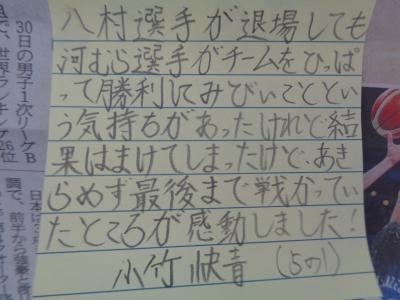 八村選手が退場しても
河むら選手がチームをひっぱ
って勝利にみびいこととい
う気持ちがあったけれど結
果はまけてしまったけど、あき
らめず最後まで戦かってい
たところが感動しました!
小竹 快音 (5の1)
30日の男子1次リーグB
世界ランキング26位